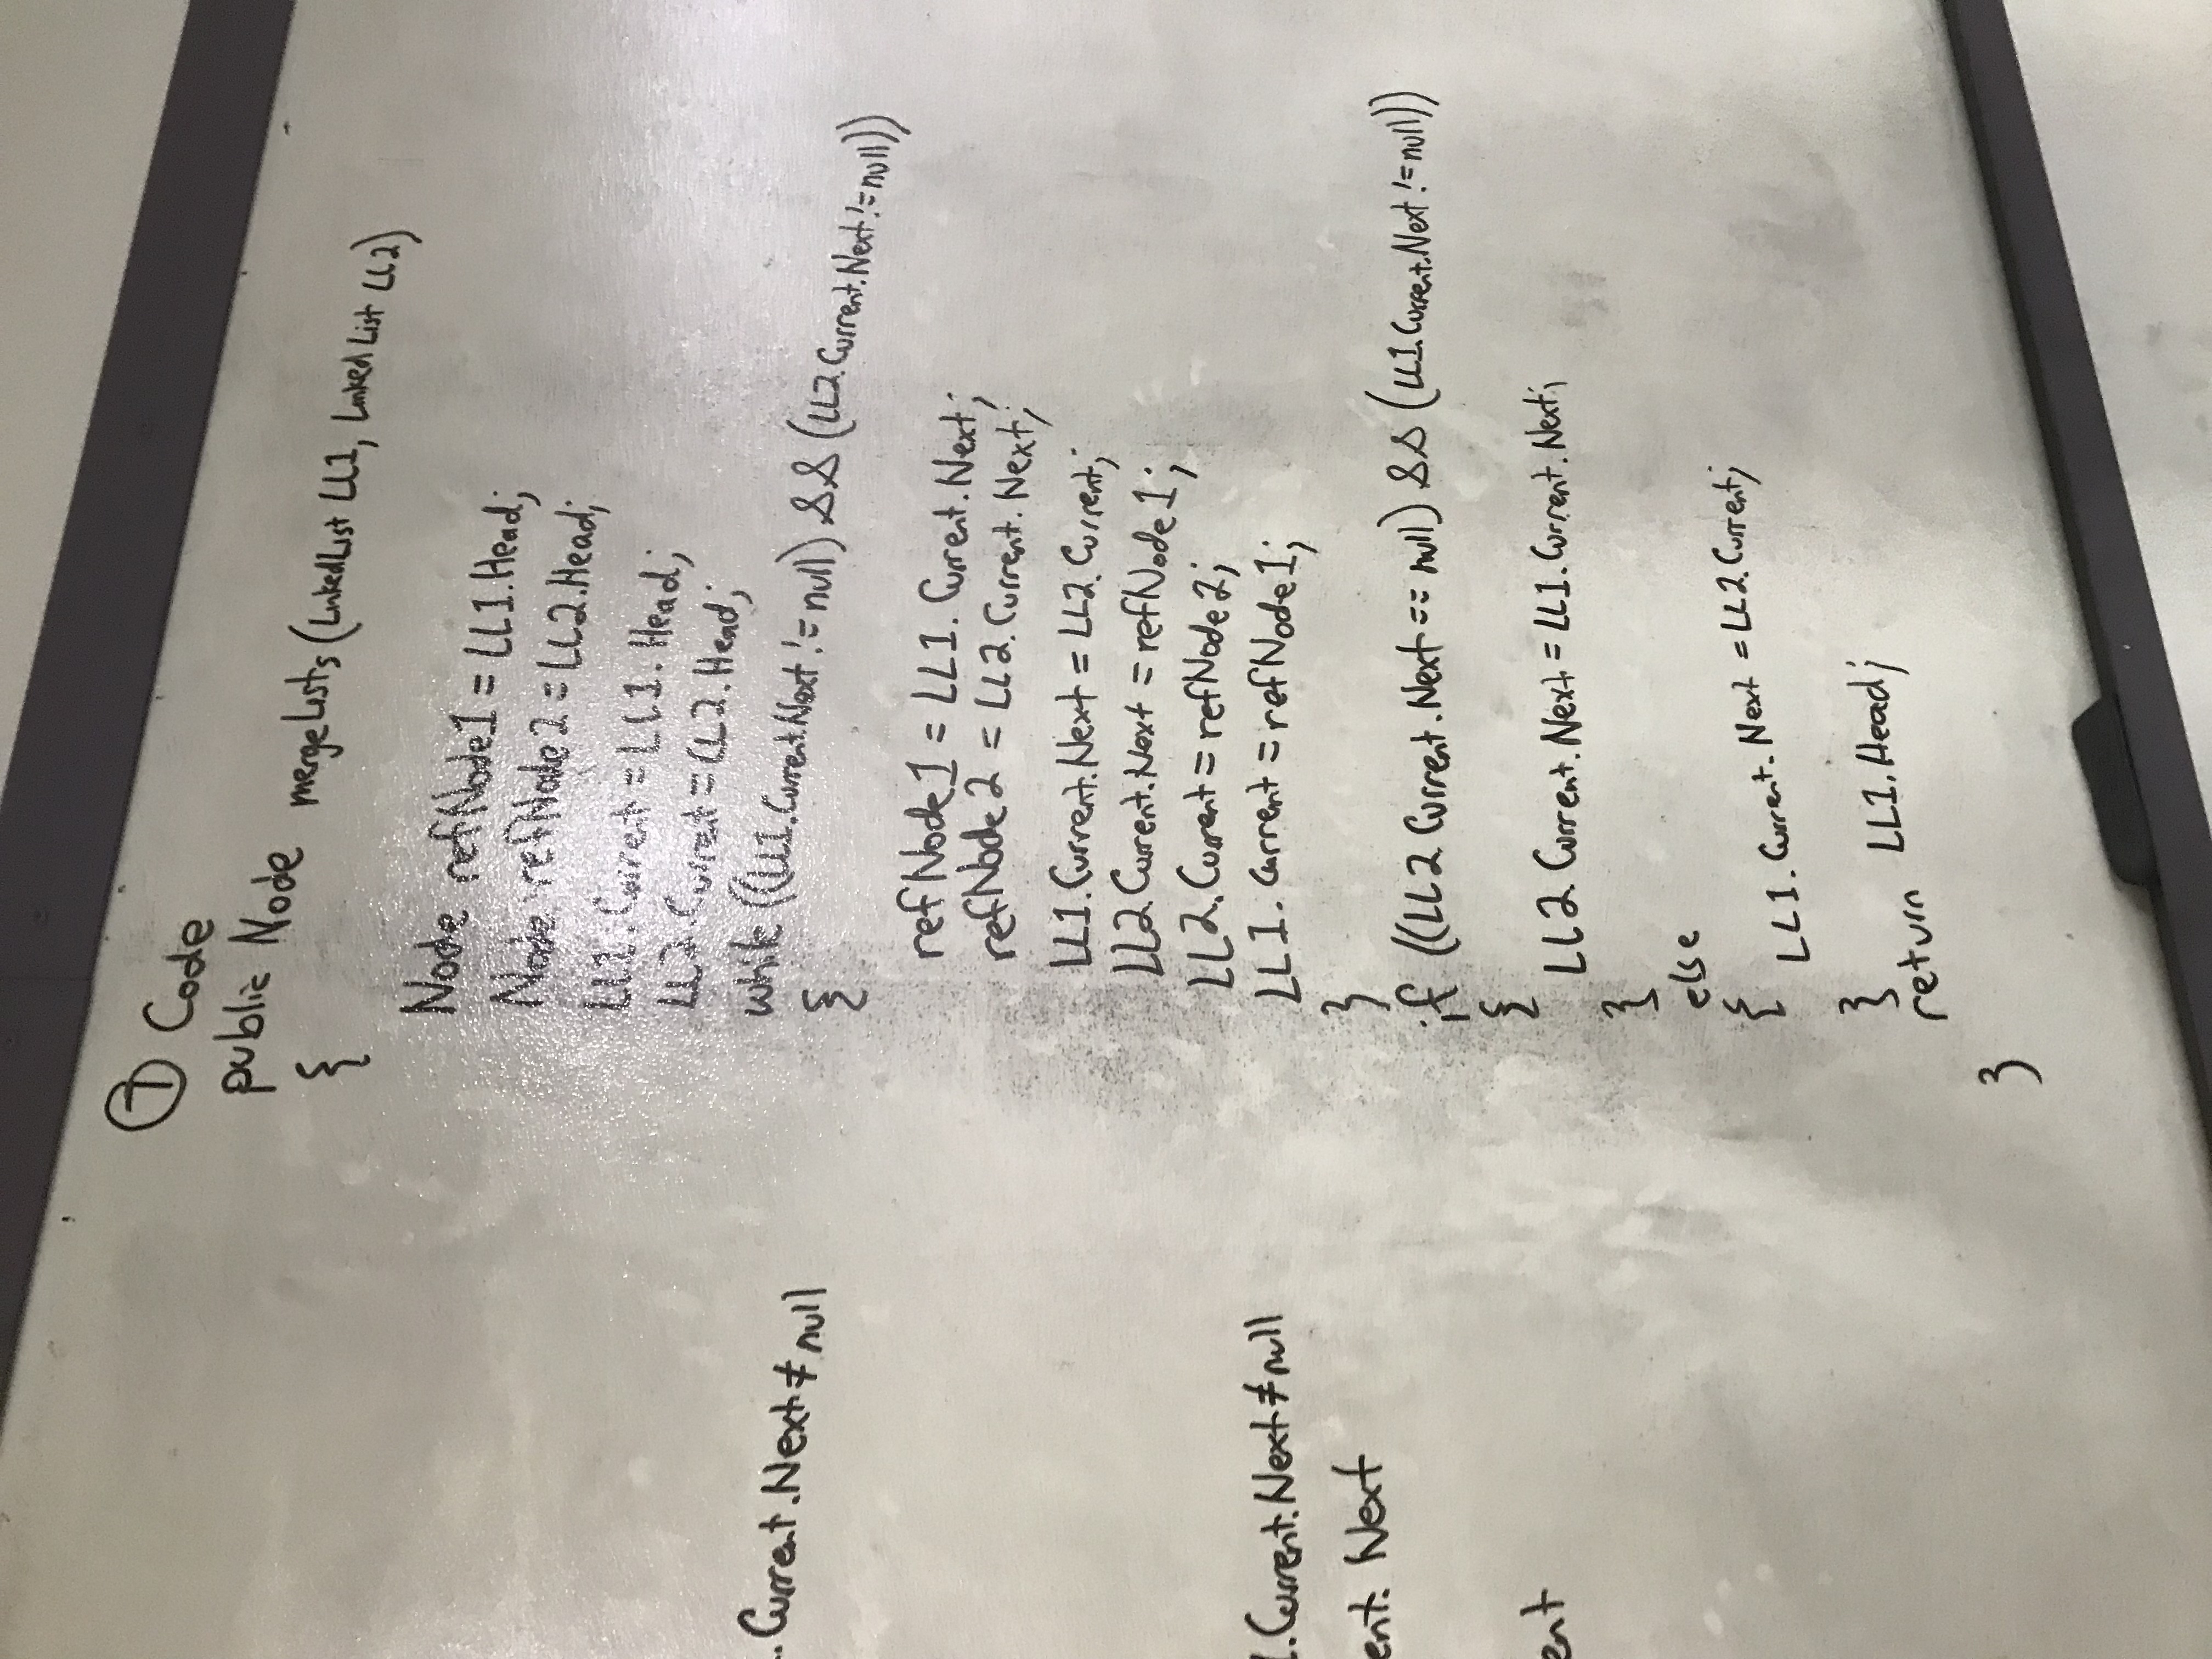 ⑦ Code
public Node mergeLists (LinkedList LL1, Linked List LL2)
{
Node refNode1 = LL1.Head;
Node refNode2 = LL2.Head;
LL1.Current = LL1. Head;
LL2.Current = LL2. Head;
while ((LL1.Current.Next != null) && (LL2.Current.Next != null))
{
refNode1 = LL1. Current.Next;
refNode2 = LL2. Current. Next;
LL1.Current.Next = LL2. Current;
LL2 Current.Next = refNode1;
LL2. Current = refNode2;
LL1. Current = refNode1;
}
if ((LL2 Current.Next == null) && (LL1.Current.Next != null))
{
LL2 Current.Next = LL1.Current.Next;
}
else
{
LL1. Current. Next = LL2.Current;
}
return LL1.Head;
}
. Current.Next ≠ null
1. Current.Next ≠ null
ent. Next
ent